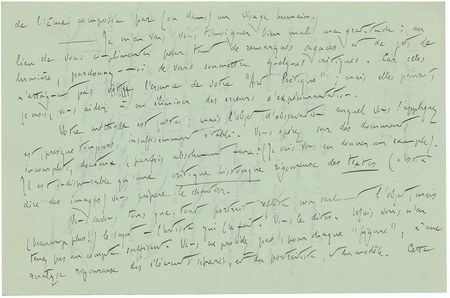 de l'âme composée par (ou dans) un visage humain.
Je m'en vais vous témoigner bien mal ma gratitude : au
lieu de vous complimenter pour tant de remarques sagaces et de jets de
lumière, pardonnez-moi de vous soumettre quelques critiques. Car celles
n'attaquent pas l'essence de votre "Art Poétique" ; mais elles peuvent,
je crois, vous aider à en éliminer des erreurs d'expérimentation.
Votre méthode est juste ; mais l'objet d'observation auquel vous l'appliquez
est presque toujours insuffisamment établi. Vous opérez sur des documents
incomplets, douteux, parfois absolument faux. (Je vais vous en donner un exemple).
Il est indispensable qu'une critique historique rigoureuse des textes (c'est à
dire des images) vous prépare le chantier.
Vous savez, tous que tout portrait reflète non seulement l'objet, mais
(beaucoup plus !) le sujet — l'artiste qui l'a fait. Vous le dites. Mais vous n'en
tenez pas un compte suffisant. Vous ne procédez pas, pour chaque "figure", à une
analyse rigoureuse des éléments séparés, et du portraitiste, et du modèle. Cette